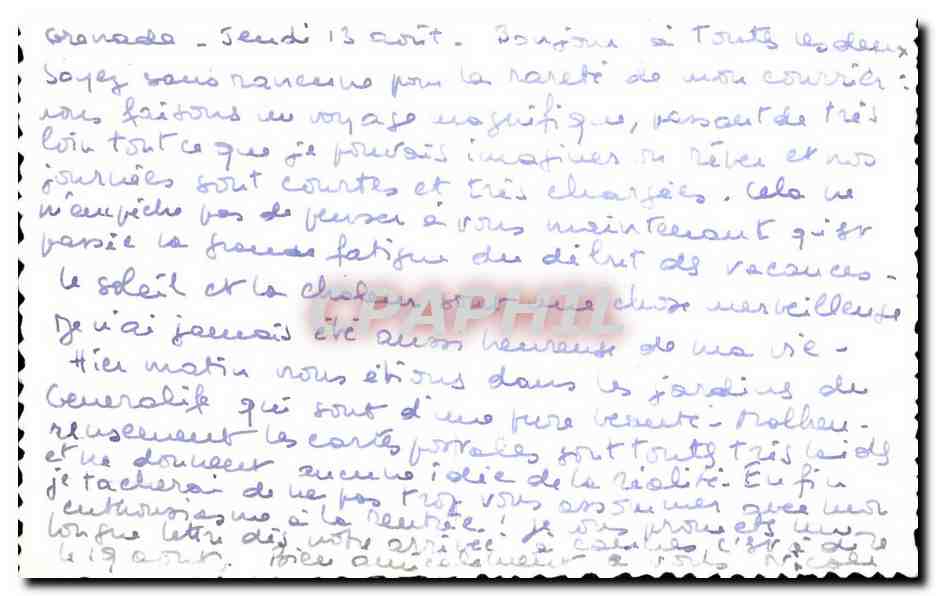 Grenada - Jeudi 13 août - Bonjour à toutes les deux
Soyez sans rancune pour la rareté de mon courrier :
nous faisons un voyage magnifique, passant de très
loin tout ce que je pouvais imaginer ou rêver et nos
journées sont courtes et très chargées. Cela ne
m'empêche pas de penser à vous maintenant qu'est
passée la grande fatigue du début des vacances -
Le soleil et la chaleur sont une chose merveilleuse
Je n'ai jamais été aussi heureuse de ma vie -
Hier matin nous étions dans les jardins du
Generalife qui sont d'une pure beauté - Malheu-
reusement les cartes postales sont toutes très laides
et ne donnent aucune idée de la réalité. Enfin
je tacherai de ne pas trop vous assommer avec mon
enthousiasme à la rentrée ! Je vous promets une
longue lettre dès notre arrivée à c'est à dire
le 19 août. Bien amicalement à vous Nicole
CPAPHIL